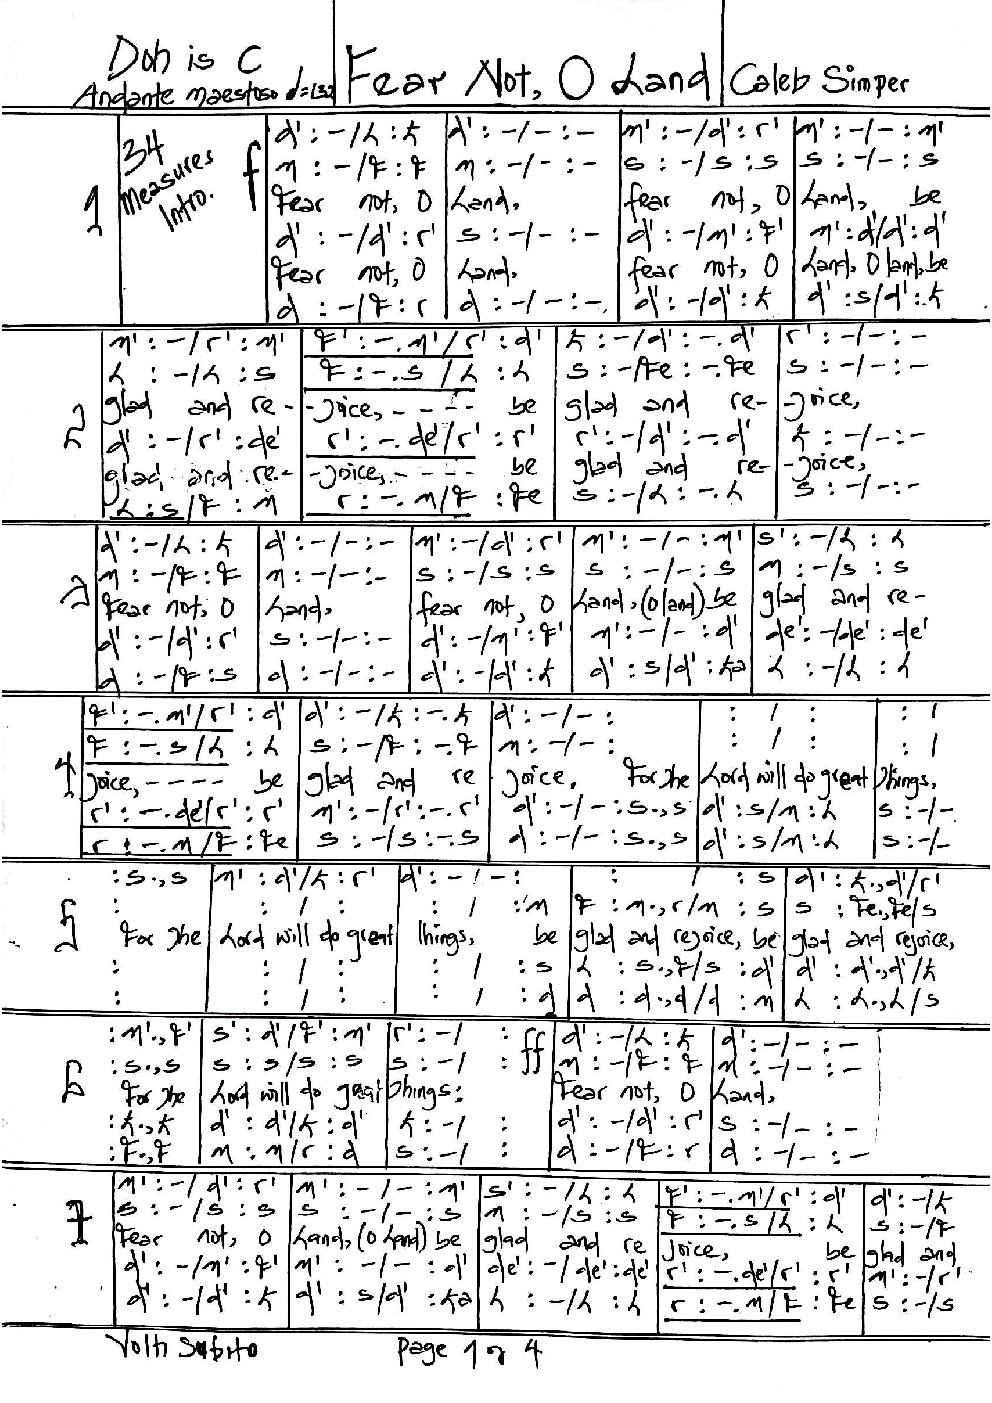 Doh is C
Andante maestoso d=132
Fear Not, O Land
Caleb Simper
1
34 Measures Intro.
f
d' : -/l : t | d' : -/- : - | m' : -/d' : r' | m' : -/- : m'
m : -/f : f | m : -/- : - | s : -/s : s | s : -/- : s
Fear not, O | Land, | fear not, O | Land, be
d' : -/d' : r' | s : -/- : - | d' : -/m' : f' | m' : d'/d' : d'
Fear not, O | Land. | fear not, O | Land, O land, be
d : -/f : r | d : -/- : - | d' : -/d' : t | d' : s/d' : t
2
m' : -/r' : m' | f' : -. m'/r' : d' | t : -/d' : -. d' | r' : -/- : -
l : -/l : s | f : -. s/l : l | s : -/fe : -. fe | s : -/- : -
glad and re- | -joice, - - - - be | glad and re- | -joice,
d' : -/r' : de' | r' : -. de'/r' : r' | r' : -/d' : -. d' | t : -/- : -
glad and re- | -joice, - - - - be | glad and re- | -joice,
l : s/f : m | r : -. m/f : fe | s : -/l : -. l | s : -/- : -
3
d' : -/l : t | d' : -/- : - | m' : -/d' : r' | m' : -/- : m' | s' : -/l : l
m : -/f : f | m : -/- : - | s : -/s : s | s : -/- : s | m : -/s : s
Fear not, O | Land, | fear not, O | Land, (O land) be | glad and re-
d' : -/d' : r' | s : -/- : - | d' : -/m' : f' | m' : -/- : d' | de' : -/de' : de'
d : -/f : s | d : -/- : - | d' : -/d' : t | d' : s/d' : ta | l : -/l : l
4
f' : -. m'/r' : d' | d' : -/t : -. t | d' : -/- : | : / : | : /
f : -. s/l : l | s : -/f : -. f | m : -/- : | : / : | : /
joice, - - - - be | glad and re | joice. For the | Lord will do great | things.
r' : -. de'/r' : r' | m' : -/r' : -. r' | d' : -/- : s., s | d' : s/m : l | s : -/-
r : -. m/f : fe | s : -/s : -. s | d' : -/- : s., s | d' : s/m : l | s : -/-
5
: s., s | m' : d'/t : r' | d' : -/- : | : / : s | d' : t., d'/r'
: | : / : | : / : m | f : m., r/m : s | s : fe., fe/s
For the | Lord will do great | things, be | glad and rejoice, be | glad and rejoice,
: | : / : | : / : s | l : s., f/s : d' | d' : d'., d'/t
: | : / : | : / : d | d : d., d/d : m | l : l., l/s
6
: m'., f' | s' : d'/f' : m' | r' : -/ : ff | d' : -/l : t | d' : -/- : -
: s., s | s : s/s : s | s : -/ : | m : -/f : f | m : -/- : -
For the | Lord will do great | things: | Fear not, O | Land,
: t., t | d' : d'/t : d' | t : -/ : | d' : -/d' : r' | s : -/- : -
: f., f | m : m/r : d | s : -/ : | d : -/f : r | d : -/- : -
7
m' : -/d' : r' | m' : -/- : m' | s' : -/l : l | f' : -. m'/r' : d' | d' : -/t
s : -/s : s | s : -/- : s | m : -/s : s | f : -. s/l : l | s : -/f
Fear not, O | Land, (O Land) be | glad and re | joice, be | glad and
d' : -/m' : f' | m' : -/- : d' | de' : -/de' : de' | r' : -. de'/r' : r' | m' : -/r'
d' : -/d' : t | d' : s/d' : ta | l : -/l : l | r : -. m/f : fe | s : -/s
Volti Subito
Page 1 of 4